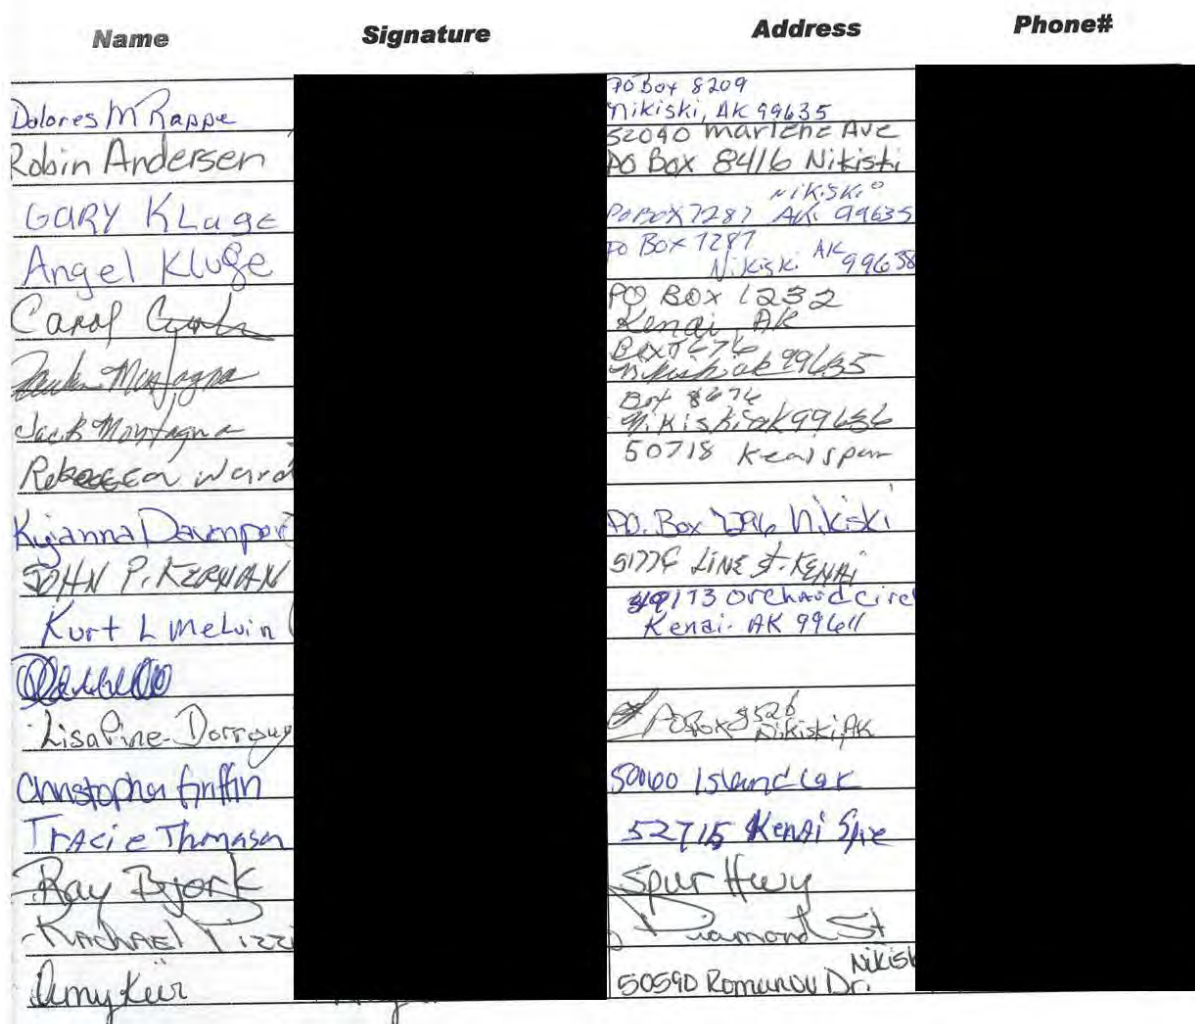 Name Signature Address Phone#
Dolores M Rappe PO Box 8209
Nikiski, AK 99635
Robin Andersen 52040 Marlene Ave
PO Box 8416 Nikiski
GARY KLuge Nikiski
PO BOX 7287 AK. 99635
Angel Kluge Po Box 7287
Nikiski AK 99635
Carol PO BOX 1232
Kenai, AK
Montagna Box 8676
Nikiski ak 99635
Jack Montagna Box 8676
Nikiski ak 99636
Rebecca Ward 50718 Kenai spur
Kijanna Davenpor PO. Box 7296 Nikiski
JOHN P. KERNAN LINE St. KENAI
Kurt L Melvin 49173 Orchard circ
Kenai- AK 99611
Lisa Pine-Dorroug PO Box 8526
Nikiski, AK
Christopher Griffin 50060 Island Lak
TRAciE Thomason 52715 Kenai
Ray Bjork Spur Hwy
RACHAEL Pizzi Diamond St
Amy Nikisk
50590 Romanov Dr.